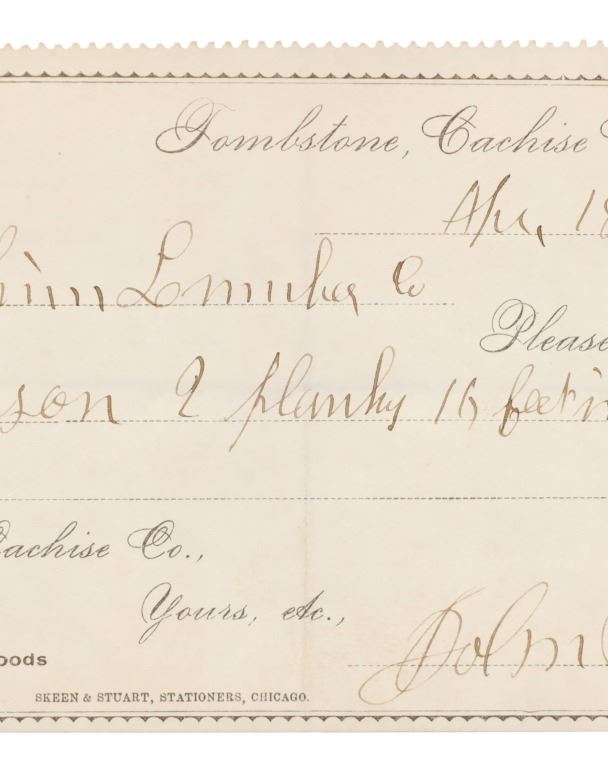 Tombstone, Cachise
Apr, 18
Lumber Co
Please
son 2 planks 16 feet
Cachise Co.,
Yours, etc.,
John
oods
SKEEN & STUART, STATIONERS, CHICAGO.